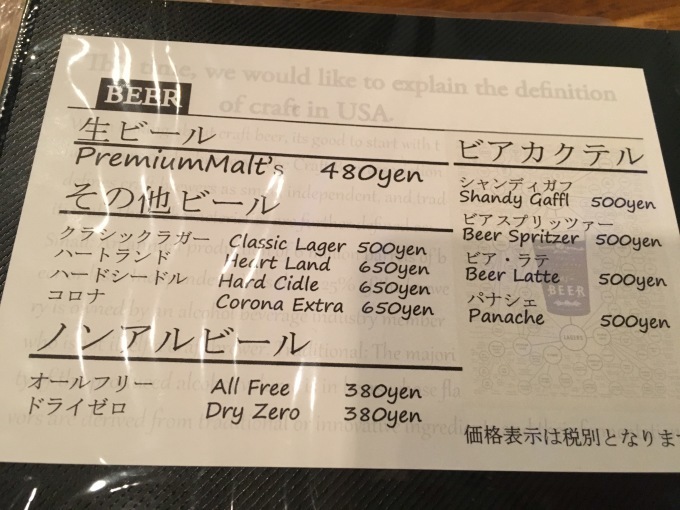 The time, we would like to explain the definition
of craft in USA.
BEER
生ビール
PremiumMalt's 480yen
その他ビール
クラシックラガー Classic Lager 500yen
ハートランド Heart Land 650yen
ハードシードル Hard Cidle 650yen
コロナ Corona Extra 650yen
ノンアルビール
オールフリー All Free 380yen
ドライゼロ Dry Zero 380yen
ビアカクテル
シャンディガフ
Shandy Gaffl 500yen
ビアスプリッツァー
Beer Spritzer 500yen
ビア・ラテ
Beer Latte 500yen
パナシェ
Panache 500yen
BEER
LAGERS
価格表示は税別となりま